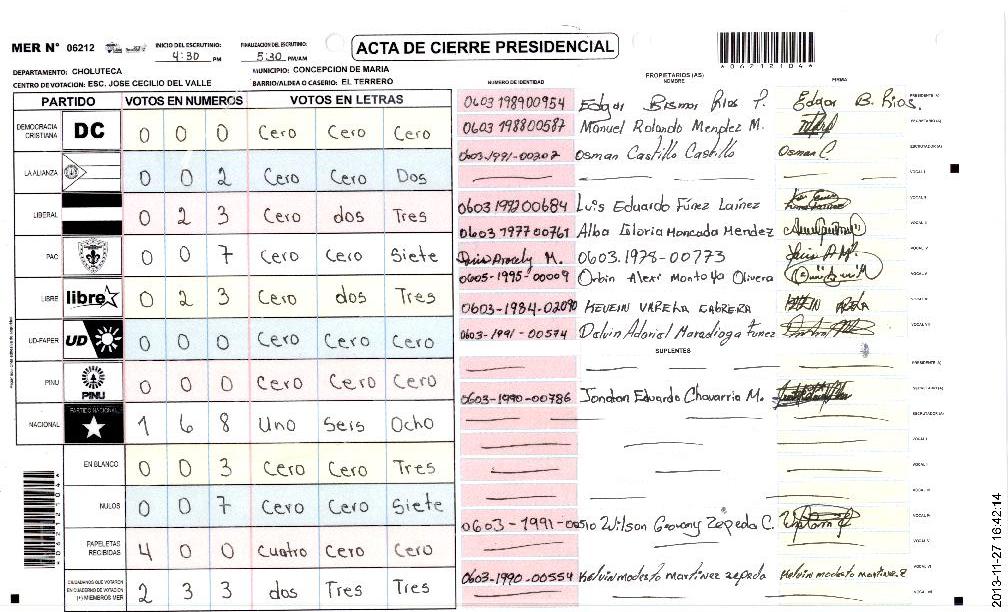 MER N° 06212
INICIO DEL ESCRUTINIO: 4:30 PM
FINALIZACION DEL ESCRUTINIO: 5:30 PM/AM
ACTA DE CIERRE PRESIDENCIAL
*06212104*
DEPARTAMENTO: CHOLUTECA
MUNICIPIO: CONCEPCION DE MARIA
CENTRO DE VOTACION: ESC. JOSE CECILIO DEL VALLE
BARRIO/ALDEA O CASERIO: EL TERRERO
PARTIDO VOTOS EN NUMEROS VOTOS EN LETRAS
DEMOCRACIA CRISTIANA DC 0 0 0 Cero Cero Cero
LA ALIANZA 0 0 2 Cero Cero Dos
LIBERAL 0 2 3 Cero dos Tres
PAC 0 0 7 Cero Cero Siete
LIBRE libre 0 2 3 Cero dos Tres
UD-FAPER UD 0 0 0 Cero Cero Cero
PINU PINU 0 0 0 Cero Cero Cero
NACIONAL PARTIDO NACIONAL 1 6 8 Uno Seis Ocho
EN BLANCO 0 0 3 Cero Cero Tres
NULOS 0 0 7 Cero Cero Siete
PAPELETAS RECIBIDAS 4 0 0 Cuatro Cero Cero
CIUDADANOS QUE VOTARON EN CUADERNO DE VOTACION (+) MIEMBROS MER 2 3 3 dos Tres Tres
NUMERO DE IDENTIDAD PROPIETARIOS (AS) NOMBRE FIRMA
0603 198900954 Edgar Bismar Rios P. Edgar B. Rios. PRESIDENTE (A)
0603 198800587 Manuel Rolando Mendez M. SECRETARIO (A)
0603-1991-00202 Osman Castillo Castillo Osman C. ESCRUTADOR (A)
VOCAL I
0603 199200684 Luis Eduardo Funez Lainez VOCAL II
0603 197700761 Alba Gloria Moncada Mendez
M. 0603.1978-00773 VOCAL IV
0605-1995-00009 Orbin Alexi Montoya Olivera VOCAL V
0603-1984-02090 KEVEIN VARELA CABRERA
0603-1991-00574 Delvin Adoniel Maradiaga Funez VOCAL VII
SUPLENTES
PRESIDENTE (A)
0603-1990-00786 Jonatan Eduardo Chavarria M. SECRETARIO (A)
ESCRUTADOR (A)
VOCAL I
0603-1991-00510 Wilson Geovany Zepeda C.
VOCAL V
0603-1990-00554 Kelvin modesto martinez zepeda Kelvin modesto martinez Z VOCAL VI
VOCAL VII
2013-11-27 16:42:14